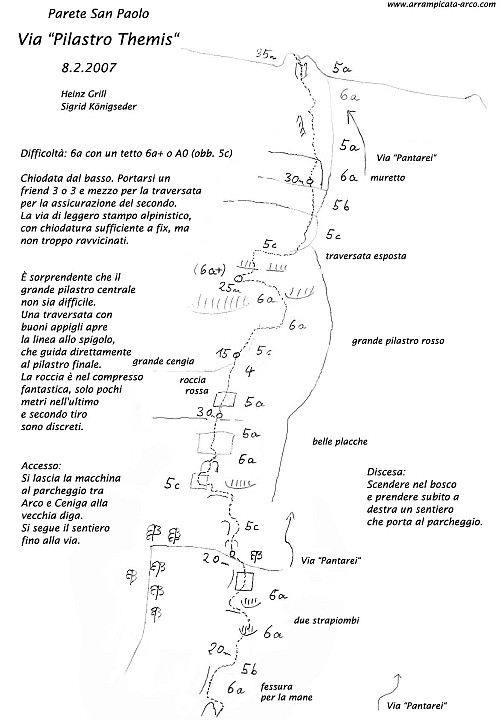 www.arrampicata-arco.com
Parete San Paolo
Via "Pilastro Themis"
8.2.2007
Heinz Grill
Sigrid Königseder
35m
5a
6a
Difficoltà: 6a con un tetto 6a+ o A0 (obb. 5c)
Chiodata dal basso. Portarsi un
friend 3 o 3 e mezzo per la traversata
per la assicurazione del secondo.
La via di leggero stampo alpinistico,
con chiodatura sufficiente a fix, ma
non troppo ravvicinati.
5a
Via "Pantarei"
30m
6a
muretto
5b
5c
5c
traversata esposta
(6a+)
25m
6a
6a
È sorprendente che il
grande pilastro centrale
non sia difficile.
Una traversata con
buoni appigli apre
la linea allo spigolo,
che guida direttamente
al pilastro finale.
La roccia è nel compresso
fantastica, solo pochi
metri nell'ultimo
e secondo tiro
sono discreti.
grande pilastro rosso
15
5c
grande cengia
4
roccia
rossa
5a
30m
5a
belle placche
6a
5c
Accesso:
Si lascia la macchina
al parcheggio tra
Arco e Ceniga alla
vecchia diga.
Si segue il sentiero
fino alla via.
Discesa:
Scendere nel bosco
e prendere subito a
destra un sentiero
che porta al parcheggio.
5c
20m
Via "Pantarei"
6a
due strapiombi
6a
20m
5b
6a
fessura
per la mane
Via "Pantarei"